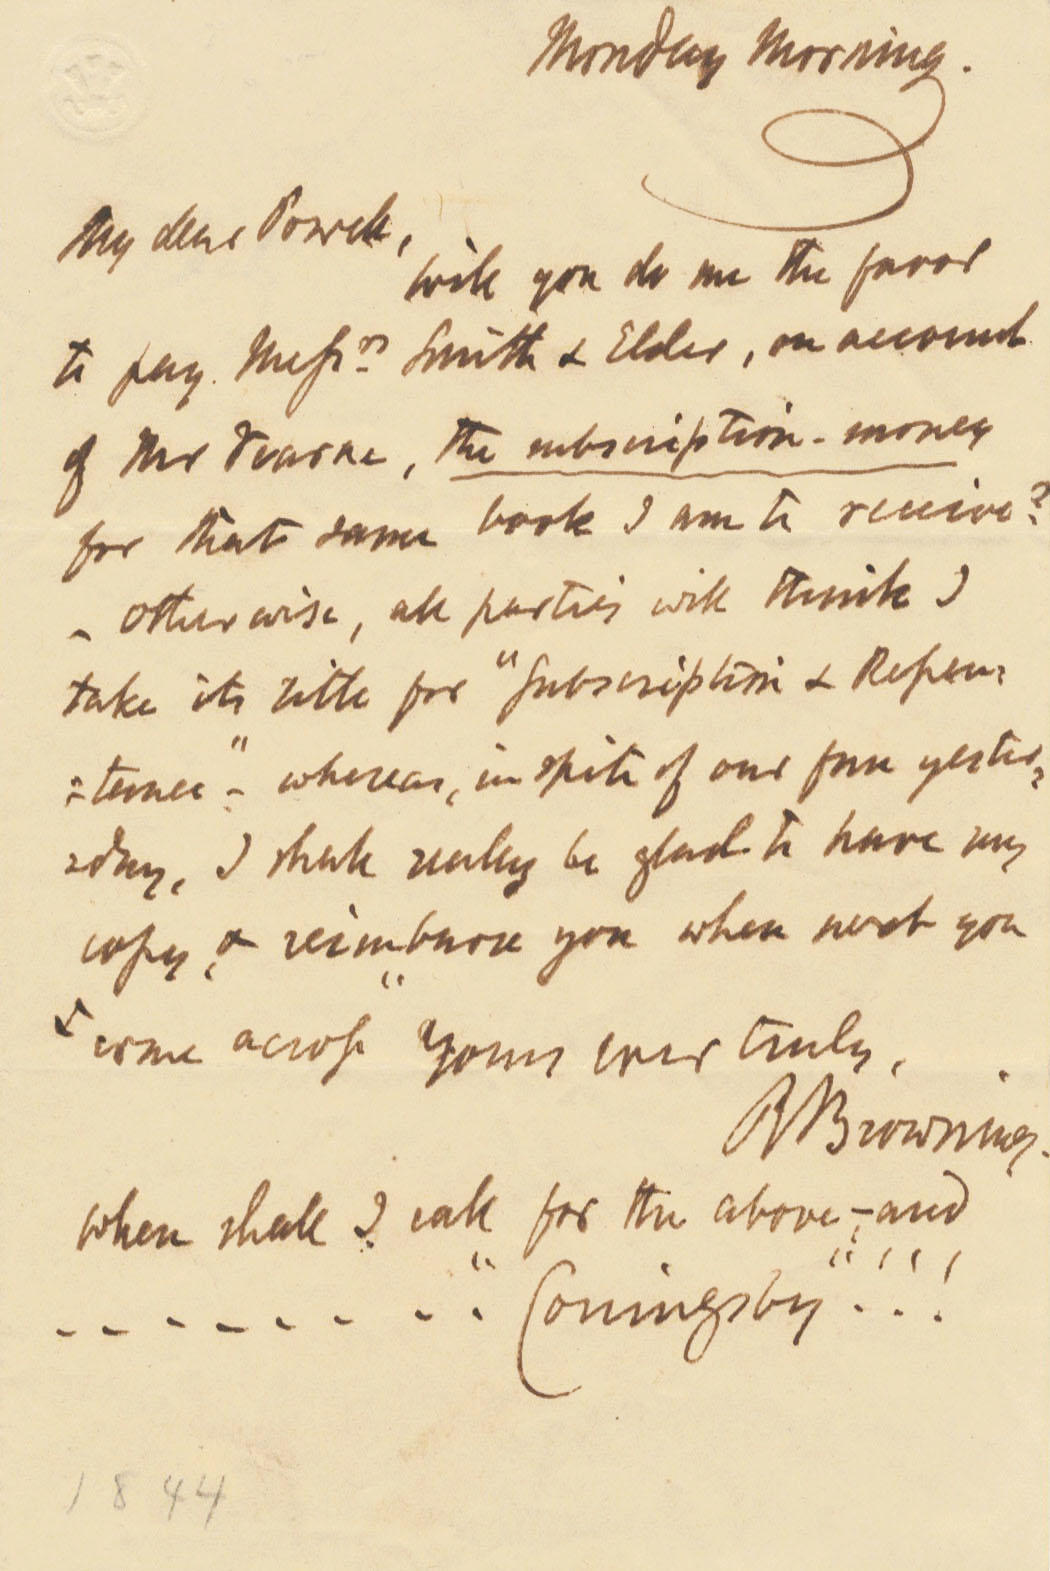 Monday Morning.
My dear Powell,
will you do me the favor
to pay Messrs Smith & Elder, on account
of Mr Fearne, the subscription-money
for that same book I am to receive?
- otherwise, all parties will think I
take its title for "Subscription & Repen=
=tance"- whereas, in spite of our fun yester=
=day, I shall really be glad to have my
copy, & reimburse you when next you
"come across" Yours ever truly,
RBrowning.
When shall I call for the above,- and
- - - - - - - - "Coningsby"!!!
1844